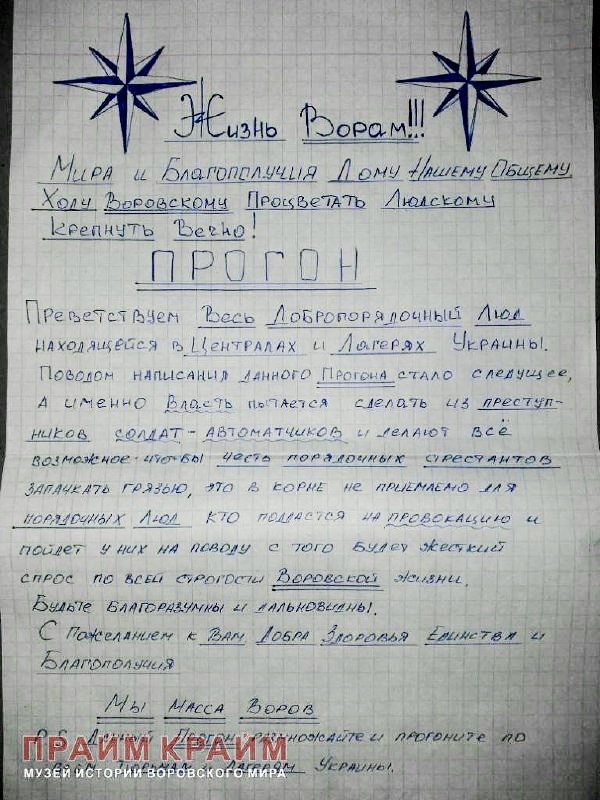 Жизнь Ворам!!!
Мира и Благополучия Дому Нашему Общему
Ходу Воровскому Процветать Людскому
Крепнуть Вечно!
ПРОГОН
Преветствуем Весь Добропорядочный Люд
находящейся в Централах и Лагерях Украины.
Поводом написания данного Прогона стало следущее,
а именно Власть пытается сделать из преступ-
ников солдат-автоматчиков и делают всё
возможное что-бы честь порядочных арестантов
запачкать грязью, это в корне не приемлемо для
порядочных Люд кто поддастся на провокацию и
пойдет у них на поводу с того будет жесткий
спрос по всей строгости Воровской жизни.
Будьте благоразумны и дальновидны.
С пожеланием к Вам Добра Здоровья Единства и
Благополучия
Мы масса Воров
P.S. Данный Прогон размножайте и прогоните по
всем тюрьмам и лагерям Украины.
ПРАЙМ КРАЙМ
МУЗЕЙ ИСТОРИИ ВОРОВСКОГО МИРА